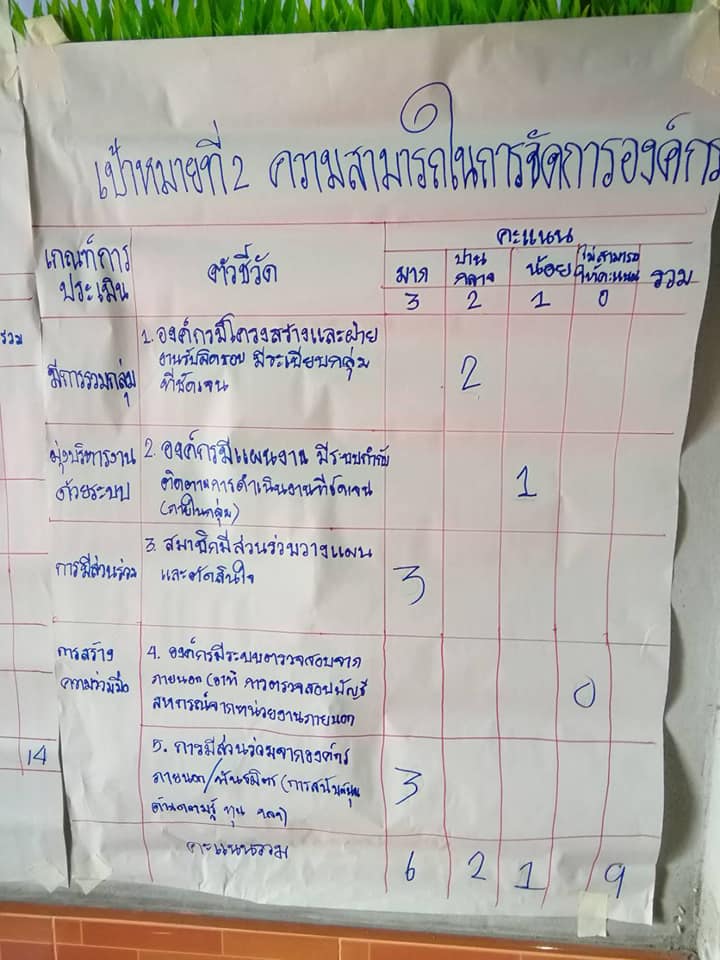 เป้าหมายที่ 2 ความสามารถในการจัดการองค์กร
เกณฑ์การ
ประเมิน
ตัวชี้วัด
คะแนน
มาก
ปาน
กลาง
น้อย
ไม่สามารถ
ให้คะแนน
รวม
3 2 1 0
มีการรวมกลุ่ม
1. องค์กรมีโครงสร้างและฝ่าย
งานรับผิดชอบ มีระเบียบกลุ่ม
ที่ชัดเจน
2
มุ่งบริหารงาน
ด้วยระบบ
2. องค์กรมีแผนงาน มีระบบกำกับ
ติดตามการดำเนินงานที่ชัดเจน
(ภายในกลุ่ม)
1
การมีส่วนร่วม
3. สมาชิกมีส่วนร่วมวางแผน
และตัดสินใจ
3
การสร้าง
ความร่วมมือ
4. องค์กรมีระบบตรวจสอบจาก
ภายนอก (อาทิ การตรวจสอบบัญชี
สหกรณ์จากหน่วยงานภายนอก
0
5. การมีส่วนร่วมจากองค์กร
ภายนอก/พันธมิตร (การสนับสนุน
ด้านความรู้ ทุน ฯลฯ)
3
คะแนนรวม
6 2 1 9
รวม
14